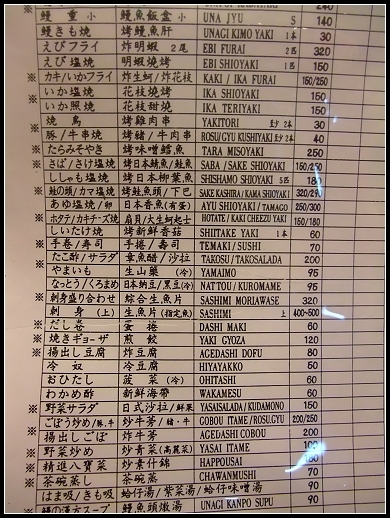 240
鰻重小 鰻魚飯盒小 UNA JYU S 140
鰻きも焼 烤鰻魚肝 UNAGI KIMO YAKI 1本 30
えびフライ 炸明蝦 2尾 EBI FURAI 2匹 320
えび塩焼 明蝦燒烤 EBI SHIOYAKI 1匹 150
※ カキ/いかフライ 炸生蚵/炸花枝 KAKI / IKA FURAI 150/250
いか塩焼 花枝燒烤 IKA SHIOYAKI 150
※ いか照焼 花枝甜燒 IKA TERIYAKI 150
焼鳥 烤雞肉串 YAKITORI 30
※ 豚/牛串焼 烤豬/牛肉串 ROSU/GYU KUSHIYAKI 2本 40
※ たらみそやき 烤味噌鱈魚 TARA MISOYAKI 250
※ さば/さけ塩焼 烤日本鯖魚/鮭魚 SABA / SAKE SHIOYAKI 150/250
ししゃも塩焼 烤日本柳葉魚 SHISHAMO SHIOYAKI 5匹 180
※ 鮭の頭/カマ塩焼 烤鮭魚頭/下巴 SAKE KASHIRA / KAMA SHIOYAKI
あゆ塩焼/たまご 日本香魚(有蛋) AYU SHIOYAKI / TAMAGO 250/300
※ ホタテ/カキチーズ焼 扇貝/大生蚵起士 HOTATE / KAKI CHEEZU YAKI 150/180
しいたけ焼 烤新鮮香菇 SHIITAKE YAKI 1本 60
※ 手巻/寿司 手捲/壽司 TEMAKI / SUSHI 70
※ たこ酢/サラダ 章魚醋/沙拉 TAKOSU / TAKOSALADA 200
やまいも 生山藥 (冷) YAMAIMO 95
なっとう/くろまめ 日本納豆/黑豆(冷) NATTOU / KUROMAME 95
※ 刺身盛り合わせ 綜合生魚片 SASHIMI MORIAWASE 320
刺身 (上) 生魚片(指定魚) SASHIMI 上 400~500
※ だし巻 蛋捲 DASHI MAKI 60
※ 焼きギョーザ 煎餃 YAKI GYOZA 120
※ 揚出し豆腐 炸豆腐 AGEDASHI DOFU 80
冷奴 冷豆腐 HIYAYAKKO 50
おひたし 菠菜 (冷) OHITASHI 60
わかめ酢 新鮮海帶 WAKAMESU 60
※ 野菜サラダ 日式沙拉/鮮果 YASAISALADA/KUDAMONO 150
ごぼう炒め/豚.牛 炒牛蒡/豬・牛 GOBOU ITAME/ROSU.GYU 200/250
※ 揚出しごぼ 炸牛蒡 AGEDASHI COBOU 200
※ 野菜炒め 炒青菜(高麗菜) YASAI ITAME 100
※ 精進八寶菜 炒素什錦 HAPPOUSAI
※ 茶碗蒸し 茶碗蒸 CHAWANMUSHI 70
はま吸/きも吸 蛤仔湯/紫菜湯/蛤仔味噌湯 90
鰻の漢方スープ 鰻魚頭燉湯 UNAGI KANPO SUPU 90